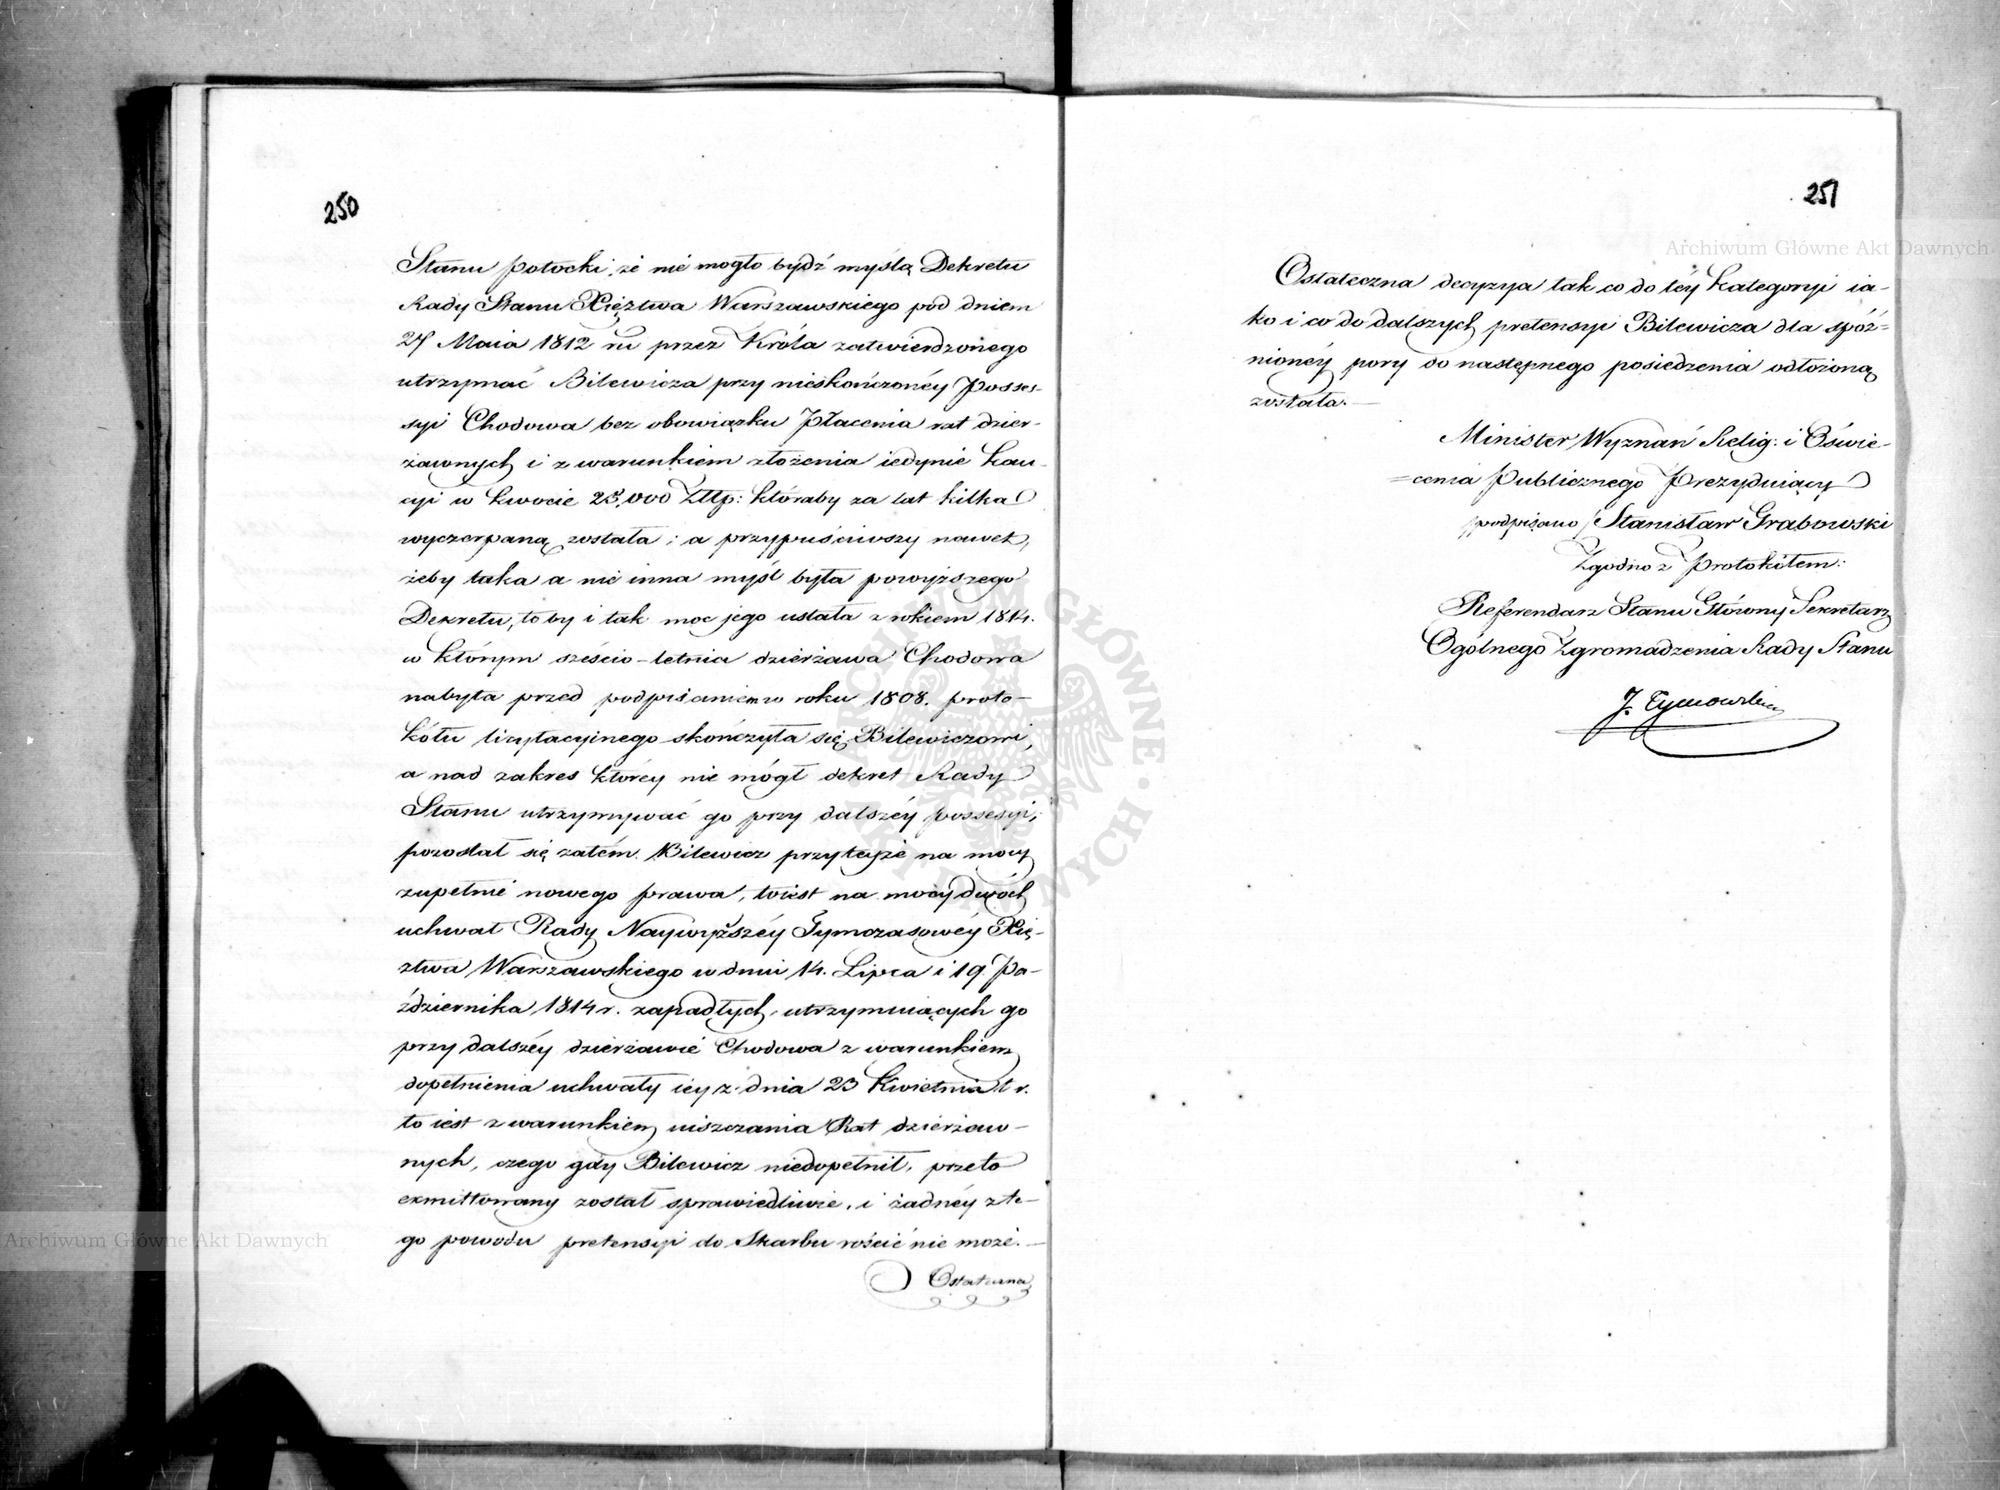 250
Stanu Potocki, że nie mogło bydź myślą Dekretu
Rady Stanu Xięztwa Warszawskiego pod dniem
27 Maia 1812 ru przez Króla zatwierdzonego
utrzymać Bilewicza przy nieskończonéy Posses-
syi Chodowa bez obowiązku Płacenia rat dzier-
żawnych i z warunkiem złożenia iedynie kau-
cyi w kwocie 28,000 Złłp: któraby za lat kilka
wyczerpaną została; a przypuściwszy nawet,
żeby taka a nie inna myśl była powyższego
Dekretu, to by i tak moc jego ustała z rokiem 1814.
w którym sześcio-letnia dzierżawa Chodowa
nabyta przed podpisaniem w roku 1808. proto-
kółu licytacyjnego skończyła się Bilewiczowi,
a nad zakres którey nie mógł dekret Rady
Stanu utrzymywać go przy dalszéy possesyi;
pozostał się zatém Bilewicz przy teyże na mocy
zupełnie nowego prawa, to iest na mocy dwóch
uchwał Rady Naywyższéy Tymczasowéy Xię-
ztwa Warszawskiego w dniu 14. Lipca i 19. Pa-
ździernika 1814 r. zapadłych, utrzymuiących go
przy dalszéy dzierżawie Chodowa z warunkiem
dopełnienia uchwały iey z dnia 23 Kwietnia t r.
to iest z warunkiem uiszczania Rat dzierżaw-
nych, czego gdy Bilewicz niedopełnił, przeto
exmittowany został sprawiedliwie, i żadnéy z te-
go powodu pretensyi do Skarbu rościć nie może.—
Ostateczna
251
Ostateczna decyzya tak co do téy kategoryi ia-
ko i co do dalszych pretensyi Bilewicza dla spóź=
nionéy pory do następnego posiedzenia odłożoną
została.—
Minister Wyznań Relig: i Oświe-
=cenia Publicznego Prezyduiący
/podpisano/ Stanisław Grabowski
Zgodno z Protokółem:
Referendarz Stanu Główny Sekretarz
Ogólnego Zgromadzenia Rady Stanu
J. Tymowski
Archiwum Główne Akt Dawnych
Archiwum Główne Akt Dawnych
ARCHIWUM GŁÓWNE AKT DAWNYCH